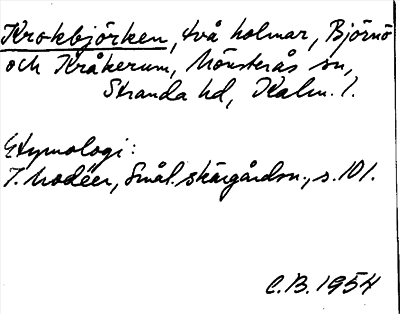 Krokbjörken, två holmar, Björnö
och Kråkerum, Mönsterås sn,
Stranda hd, Kalm. l.
Etymologi:
I. Modéer, Smål. skärgårdsn., s. 101.
C.B. 1954